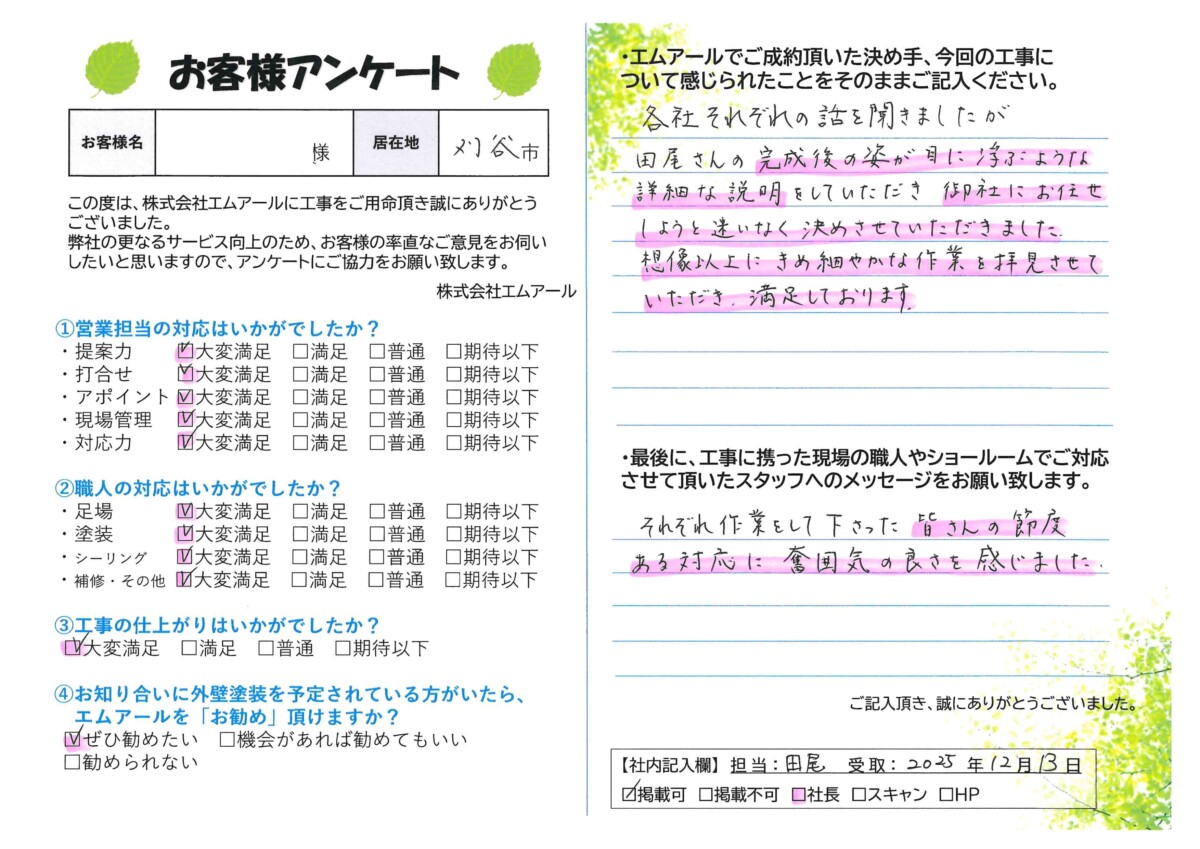 お客様アンケート
お客様名 様 居在地 刈谷市
この度は、株式会社エムアールに工事をご用命頂き誠にありがとう
ございました。
弊社の更なるサービス向上のため、お客様の率直なご意見をお伺い
したいと思いますので、アンケートにご協力をお願い致します。
株式会社エムアール
①営業担当の対応はいかがでしたか？
・提案力 ☑大変満足 □満足 □普通 □期待以下
・打合せ ☑大変満足 □満足 □普通 □期待以下
・アポイント ☑大変満足 □満足 □普通 □期待以下
・現場管理 ☑大変満足 □満足 □普通 □期待以下
・対応力 ☑大変満足 □満足 □普通 □期待以下
②職人の対応はいかがでしたか？
・足場 ☑大変満足 □満足 □普通 □期待以下
・塗装 ☑大変満足 □満足 □普通 □期待以下
・シーリング ☑大変満足 □満足 □普通 □期待以下
・補修・その他 ☑大変満足 □満足 □普通 □期待以下
③工事の仕上がりはいかがでしたか？
☑大変満足 □満足 □普通 □期待以下
④お知り合いに外壁塗装を予定されている方がいたら、
エムアールを「お勧め」頂けますか？
☑ぜひ勧めたい □機会があれば勧めてもいい
□勧められない
・エムアールでご成約頂いた決め手、今回の工事に
ついて感じられたことをそのままご記入ください。
各社それぞれの話を聞きましたが
田尾さんの完成後の姿が目に浮ぶような
詳細な説明をしていただき 御社にお任せ
しようと迷いなく決めさせていただきました.
想像以上にきめ細やかな作業を拝見させて
いただき.満足しております.
・最後に、工事に携った現場の職人やショールームでご対応
させて頂いたスタッフへのメッセージをお願い致します。
それぞれ作業をして下さった皆さんの節度
ある対応に 奮囲気の良さを感じました.
ご記入頂き、誠にありがとうございました。
【社内記入欄】担当：田尾 受取：2025年12月13日
☑掲載可 □掲載不可 □社長 □スキャン □HP